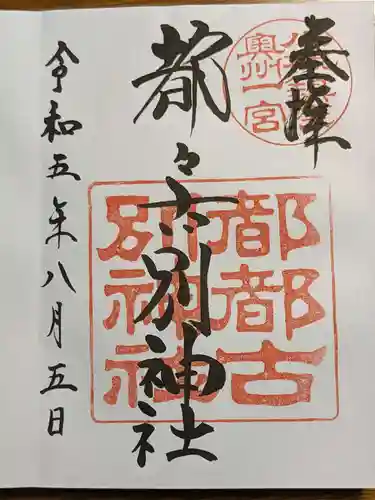 奉拝
奥州一宮
都々古別神社
都都古
別神社
令和五年八月五日